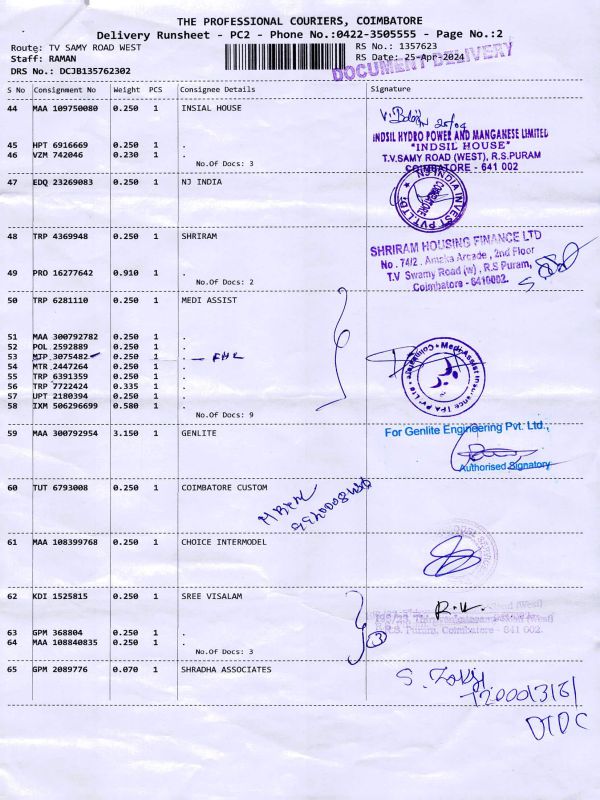 THE PROFESSIONAL COURIERS, COIMBATORE
Delivery Runsheet - PC2 - Phone No.:0422-3505555 - Page No.:2
Route: TV SAMY ROAD WEST RS No.: 1357623
Staff: RAMAN RS Date: 25-Apr-2024
DRS No.: DCJB135762302
DOCUMENT DELIVERY
S No Consignment No Weight PCS Consignee Details Signature
44 MAA 109750080 0.250 1 INSIAL HOUSE
25/04
INDSIL HYDRO POWER AND MANGANESE LIMITED
"INDSIL HOUSE"
T.V.SAMY ROAD (WEST), R.S.PURAM
COIMBATORE - 641 002
45 HPT 6916669 0.250 1 .
46 VZM 742046 0.230 1 .
No.Of Docs: 3
47 EDQ 23269083 0.250 1 NJ INDIA
NJ INDIA INVEST PVT LTD
COIMBATORE
48 TRP 4369948 0.250 1 SHRIRAM
SHRIRAM HOUSING FINANCE LTD
No. 74/2, Amska Arcade, 2nd Floor
T.V Swamy Road (w), R.S Puram,
Coimbatore - 6410002.
49 PRO 16277642 0.910 1 .
No.Of Docs: 2
50 TRP 6281110 0.250 1 MEDI ASSIST
51 MAA 300792782 0.250 1 .
52 POL 2592889 0.250 1 .
53 MTP 3075482 0.250 1 .
54 MTR 2447264 0.250 1 .
55 TRP 6391359 0.250 1 .
56 TRP 7722424 0.335 1 .
57 UPT 2180394 0.250 1 .
58 IXM 506296699 0.580 1 .
No.Of Docs: 9
Medi Assist Insurance TPA Pvt. Ltd. Coimbatore
59 MAA 300792954 3.150 1 GENLITE
For Genlite Engineering Pvt. Ltd.,
Authorised Signatory
60 TUT 6793008 0.250 1 COIMBATORE CUSTOM
61 MAA 108399768 0.250 1 CHOICE INTERMODEL
62 KDI 1525815 0.250 1 SREE VISALAM
R.V.
R.S. Puram, Coimbatore - 641 002.
63 GPM 368804 0.250 1 .
64 MAA 108840835 0.250 1 .
3
No.Of Docs: 3
65 GPM 2089776 0.070 1 SHRADHA ASSOCIATES
DTDC